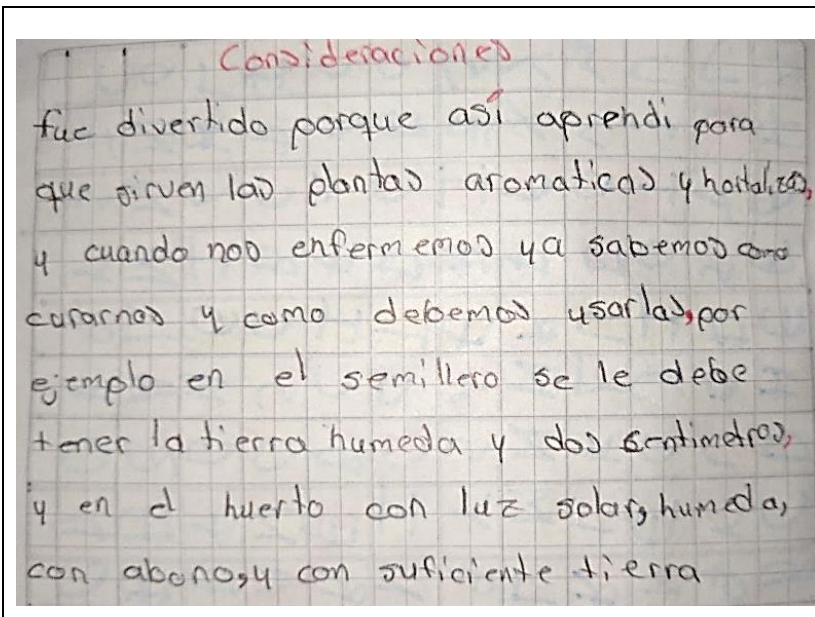 Consideraciones
fue divertido porque así aprendi para
que sirven las plantas aromaticas y hortalizas,
y cuando nos enfermemos ya sabemos como
curarnos y como debemos usarlas, por
ejemplo en el semillero se le debe
tener la tierra humeda y dos sentimetros,
y en el huerto con luz solar, humeda,
con abono, y con suficiente tierra